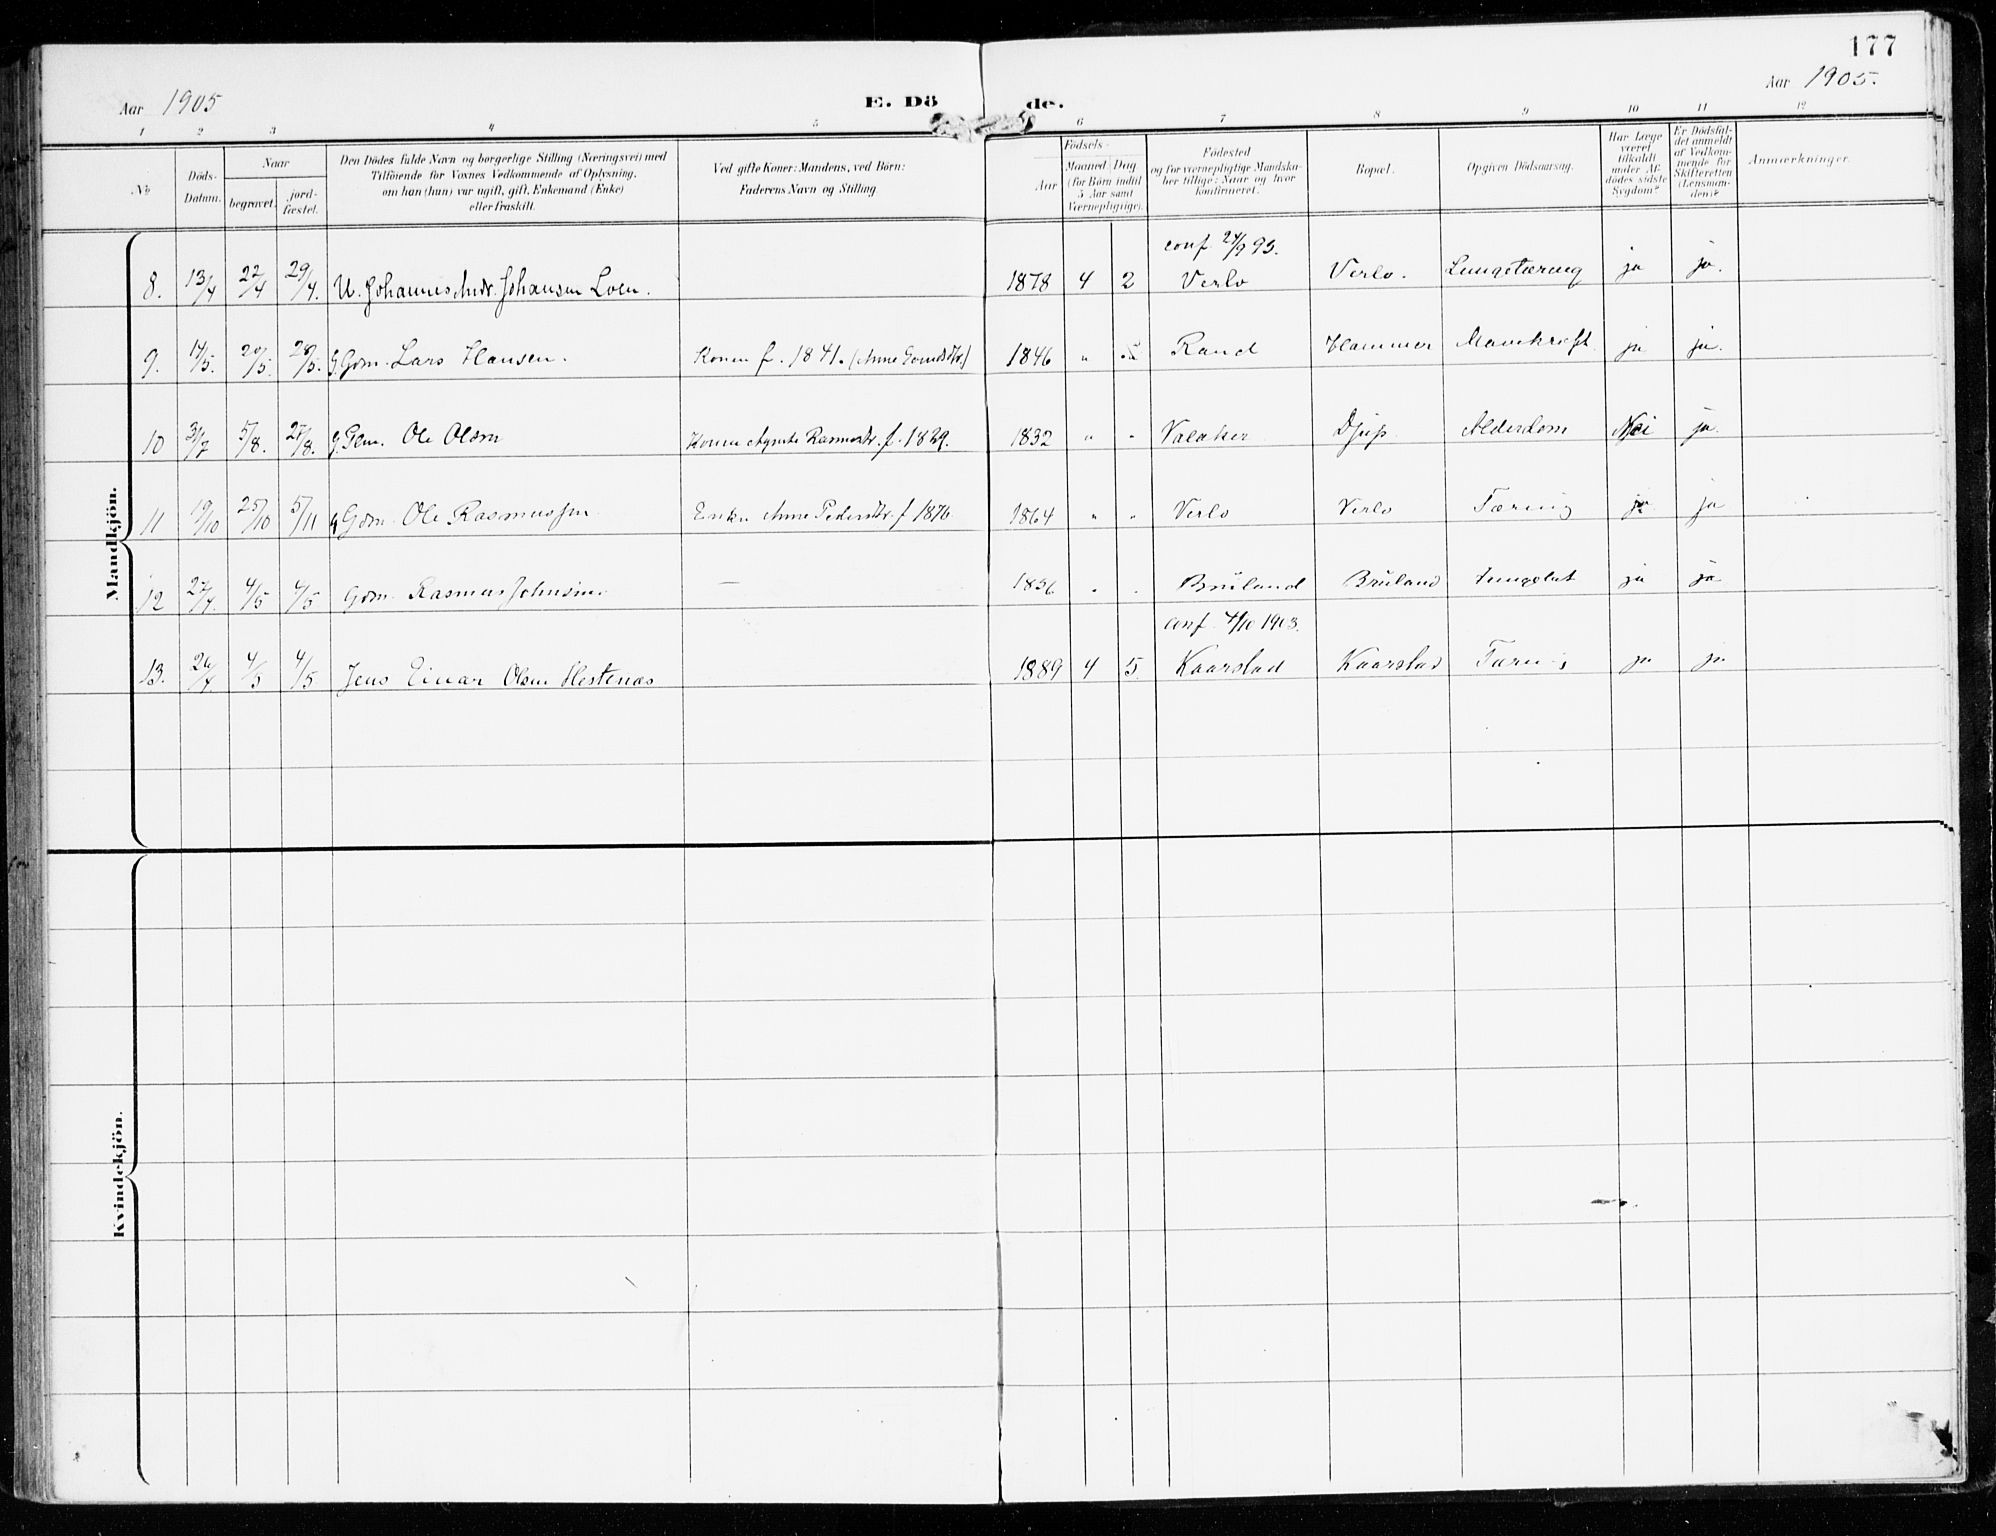 177
Aar 1905 E. Dö de. Aar 1905.
1 2 3 4 5 6 7 8 9 10 11 12
No
Döds-Datum.
Naar
begravet.
jordfæstet.
Den Dödes fulde Navn og borgerlige Stilling (Næringsvei) med
Tilföiende for Voxnes Vedkommende af Oplysning,
om han (hun) var ugift, gift, Enkemand (Enke)
eller fraskilt.
Ved gifte Koner: Mandens, ved Börn:
Faderens Navn og Stilling.
Födsels-
Aar
Maaned Dag
(for Börn indtil
5 Aar samt
Værnepligtige).
Födested
og for værnepligtige Mandska-
ber tillige: Naar og hvor
konfirmeret.
Bopæl.
Opgiven Dödsaarsag.
Har Læge
været
tilkaldt
under Af-
dödes sidste
Sygdom?
Er Dödsfal-
det anmeldt
af Vedkom-
mende for
Skifteretten
(Lensman-
den)?
Anmærkninger.
Mandkjön.
conf. 24/9 93.
8. 13/4 22/4 29/4. U. Johannes Andr. Johansen Loen. 1878 4 2 Verlo Verlo. Lungetæring ja ja.
9. 14/5. 20/5. 28/5. G. Gdm. Lars Hansen. Konen f. 1841. (Anne 1846 " Rand Hammer Mavekræft ja ja.
10 31/7 5/8. 27/8. G. Olsen Konen f. 1829. 1832 " " Valaker Djup Alderdom Nei ja.
11 19/10 25/10 5/11 G Gdm. Ole Rasmussen Enken Anne Pedersdtr. f 1876 1864 " " Verlo Verlo Tæring ja ja
12 27/4. 4/5 4/5 Gdm. Rasmus Johnsen. — 1836 " . Bruland Bruland ja ja
conf. 4/10 1903.
13. 26/4 4/5 4/5 Jens Einar Olsen Hestenæs 1889 4 5 Kaarstad Kaarstad Tæring ja ja
Kvindekjön.